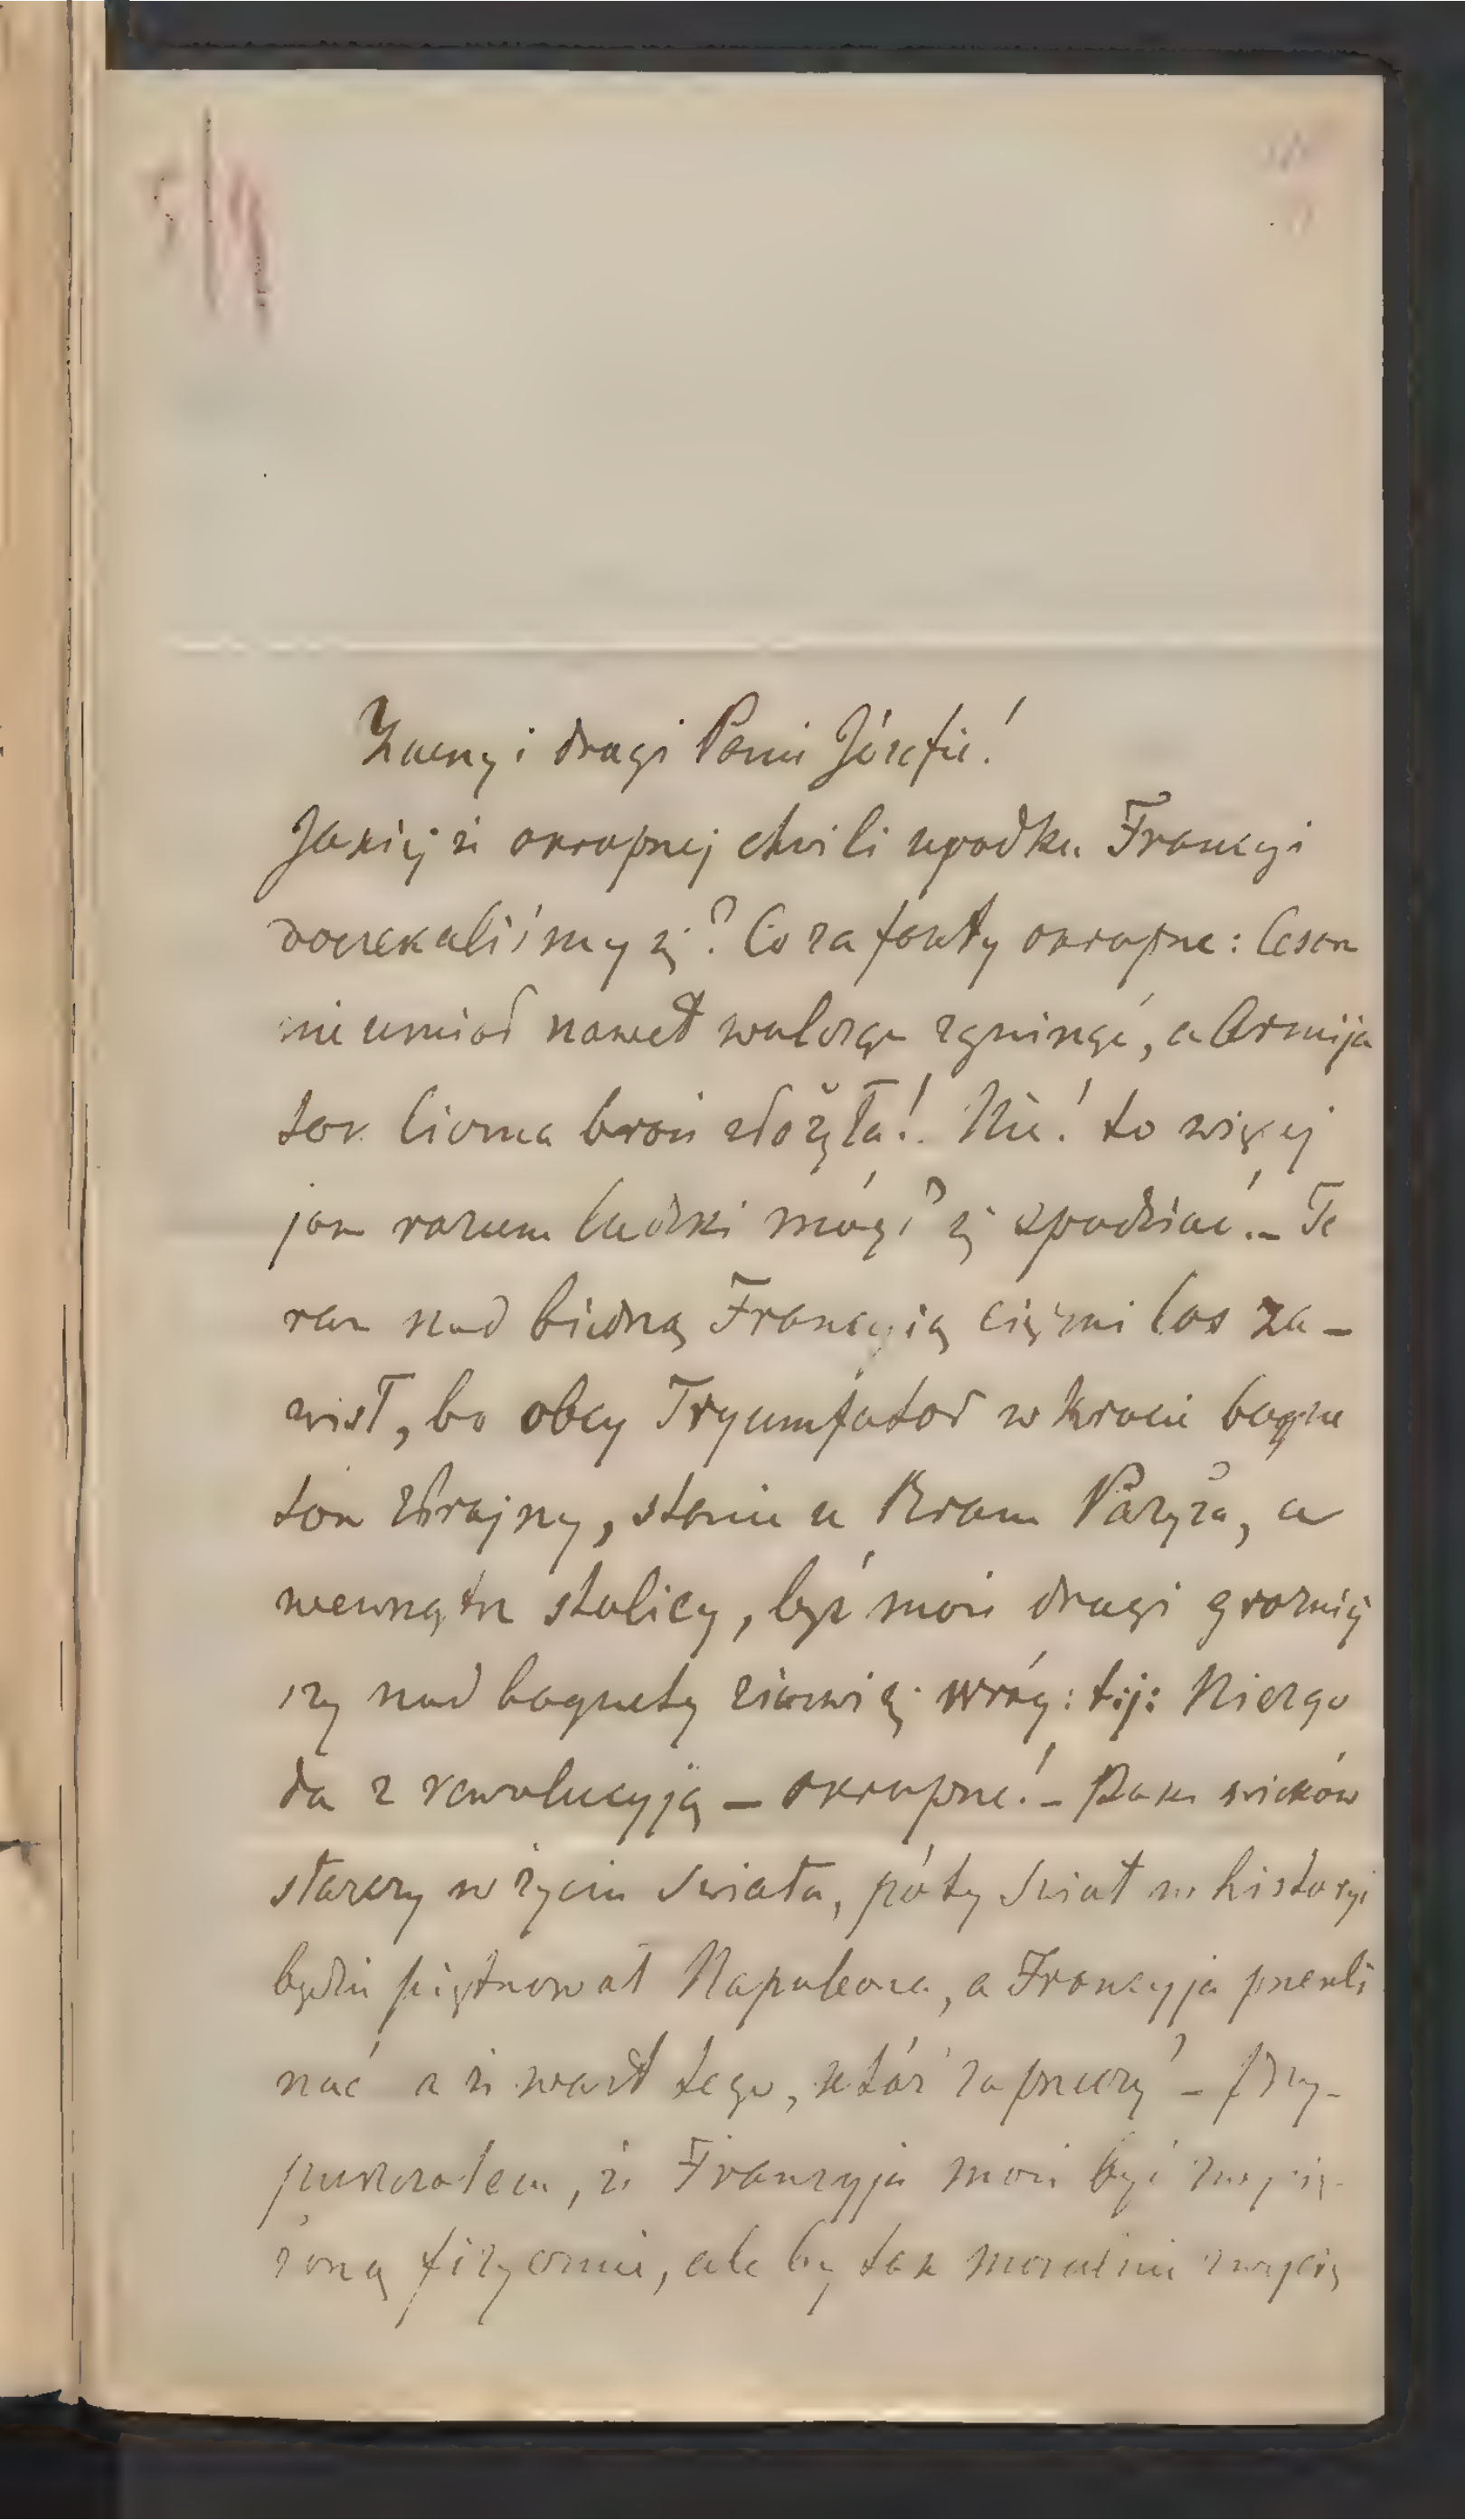 5/9
Zacny i drogi Panie Józefie!
Jakiéj że okropnej chwili upadku Francyi
doczekaliśmy się? Co za fakty okropne: Cesarz
nie umiał nawet walcząc zginąć, a Armija
tak liczna broń złożyła! Nie! to więcej
jak rozum ludzki mógł się spodziać! – Te
raz nad biedną Francyią ciężki los za –
wisł, bo obcy Tryumfator w krocie bagne
tów zbrojny, stanie u Bram Paryża, a
wewnątrz stolicy, być może drugi groźniej
szy nad bagnety zjawi się wróg: t:j: Niezgo
da z rewolucyją – okropne! – Póki wieków
starczy w życiu świata, póty świat w historyi
będzie piętnował Napoleona, a Francyja przekli
nać a że wart tego, któż zaprzeczy – Przy-
puszczałem, że Francyja może być zwycię-
żoną fizycznie, ale by tak moralnie zwycię